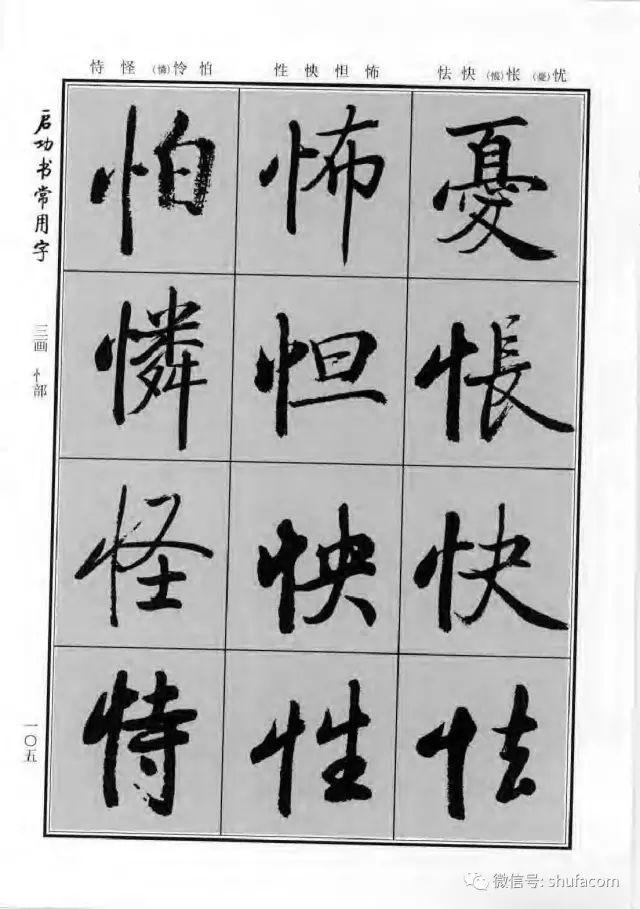 忧(憂)怅(悵)快怯
怖怛怏性
怕怜(憐)怪恃
憂悵快怯
怖怛怏性
怕憐怪恃
启功书常用字
三画 忄部
一〇五
微信号: shufacom